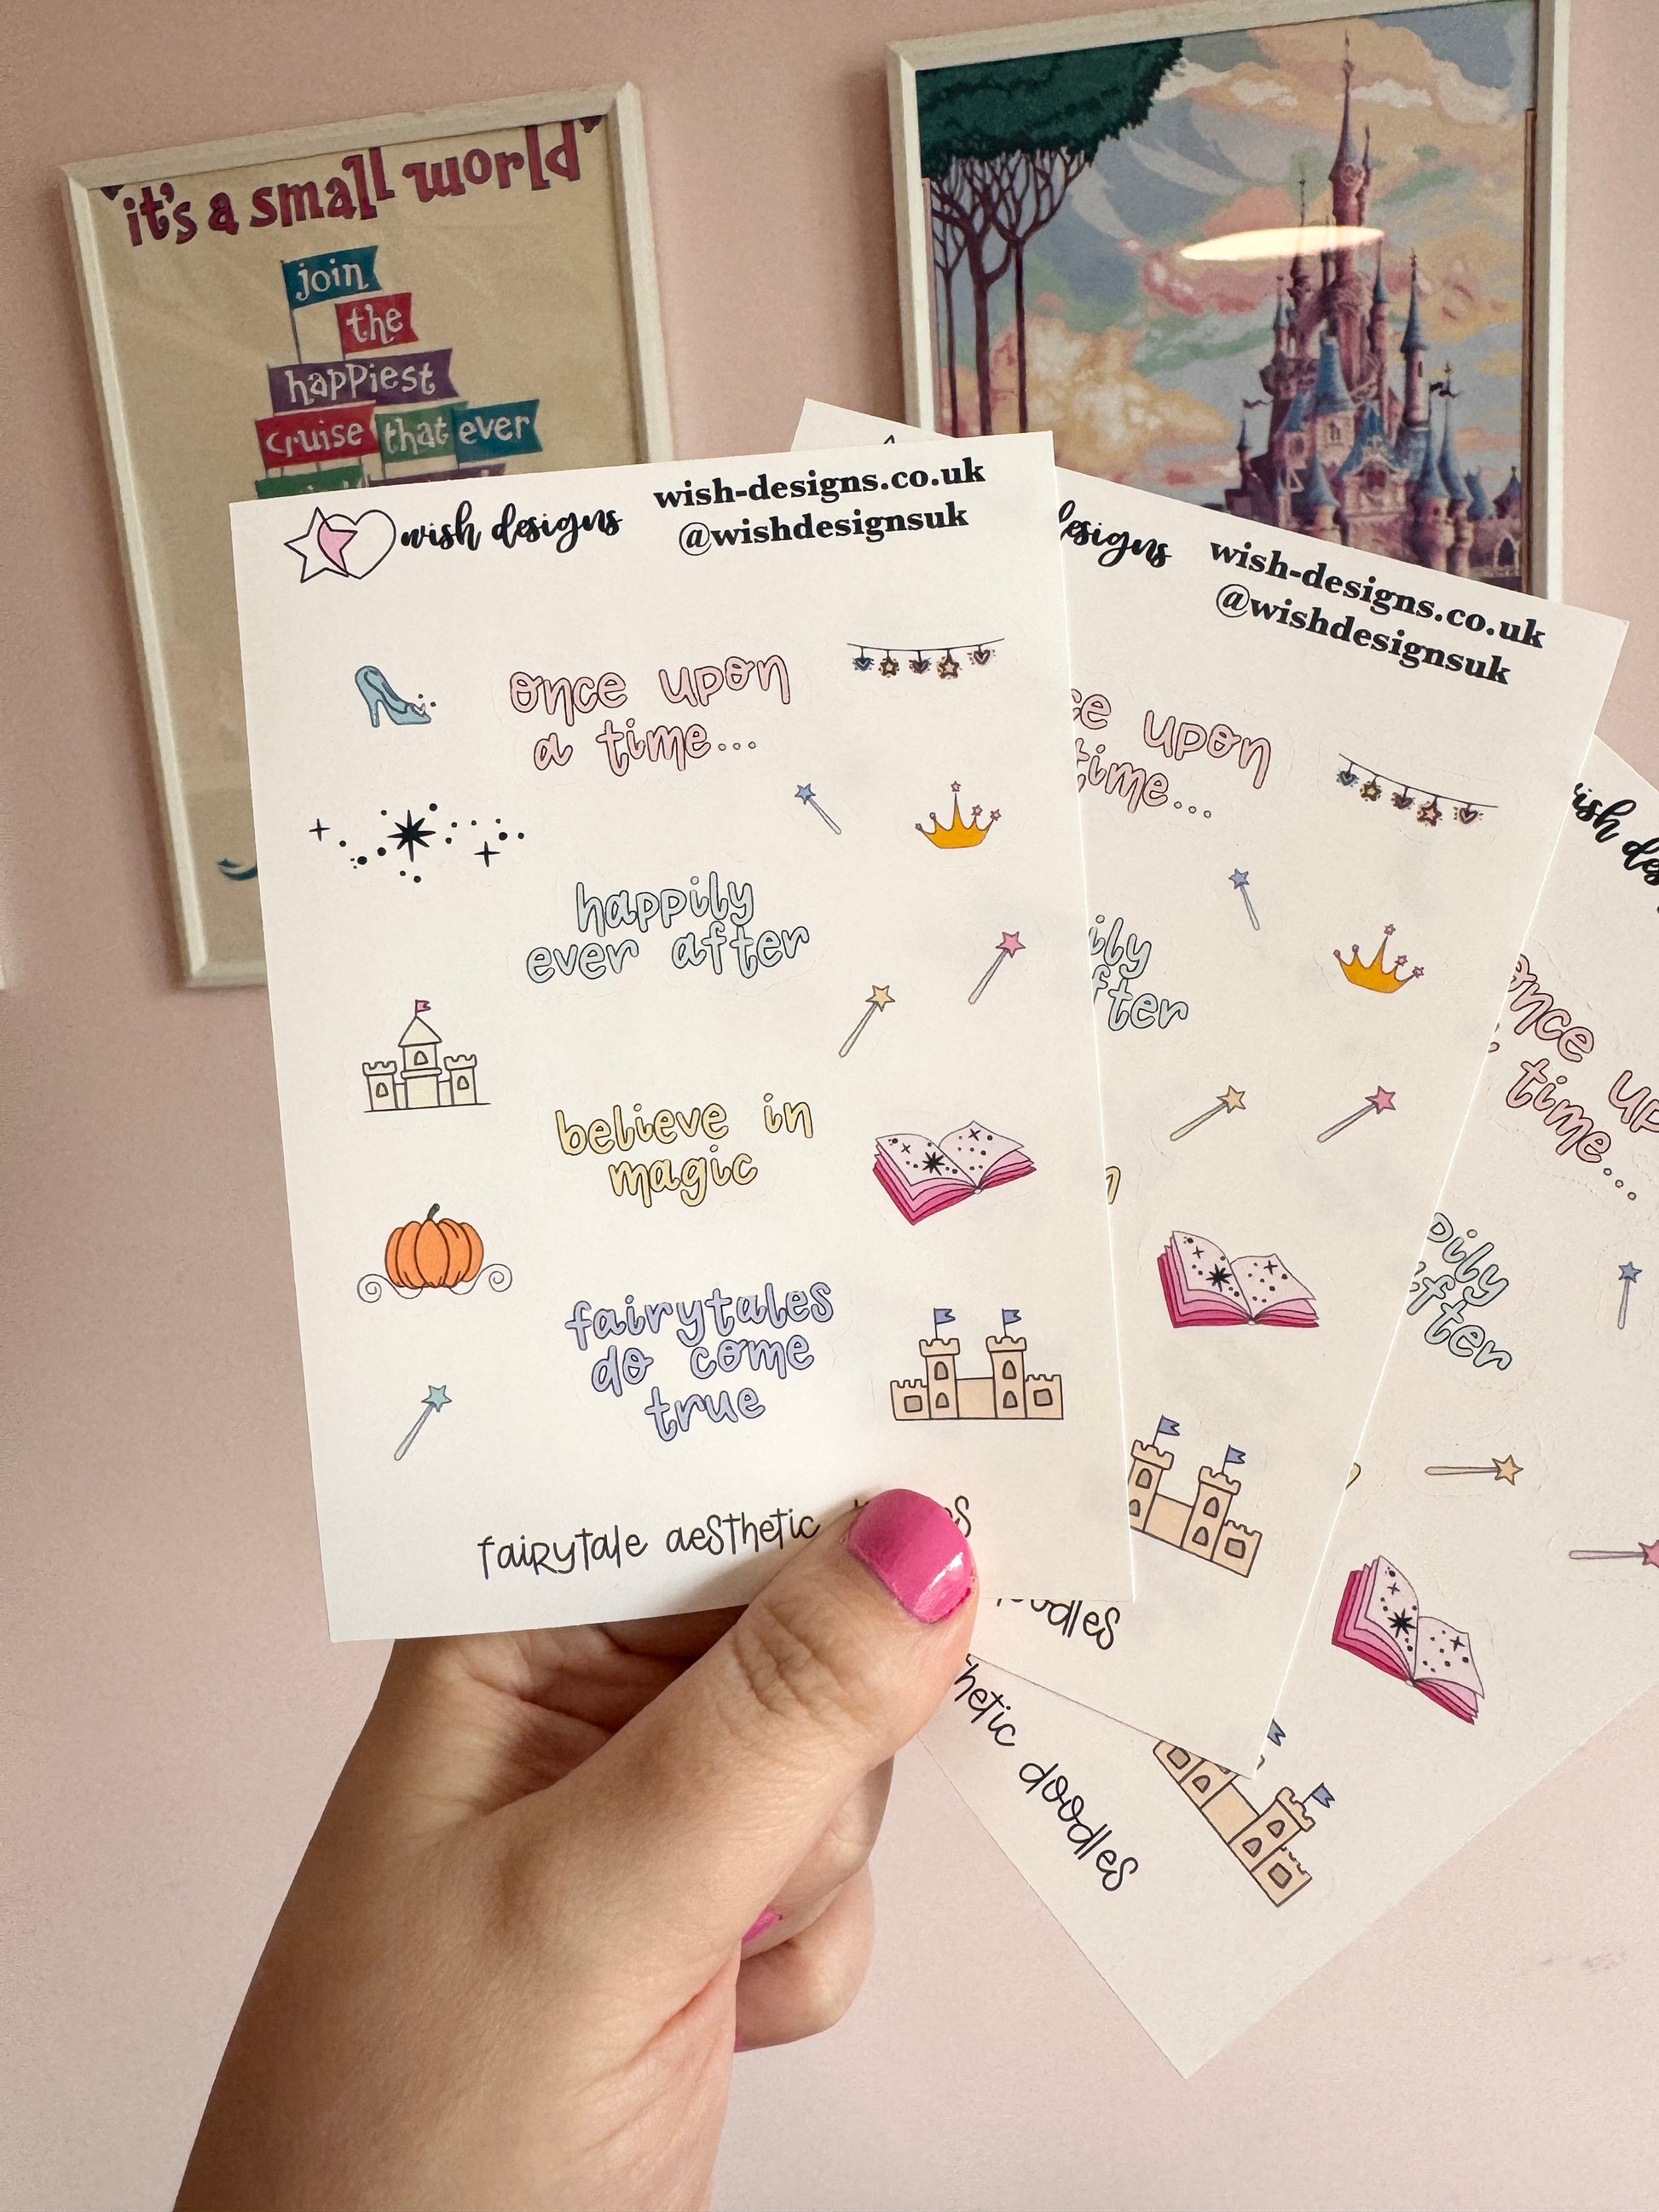 it's a small world
join
the
happiest
cruise that ever
wish designs
wish-designs.co.uk
@wishdesignsuk
once upon
a time...
happily
ever after
believe in
magic
fairytales
do come
true
fairytale aesthetic
designs
wish-designs.co.uk
@wishdesignsuk
upon
time...
doodles
once up
time...
doodles